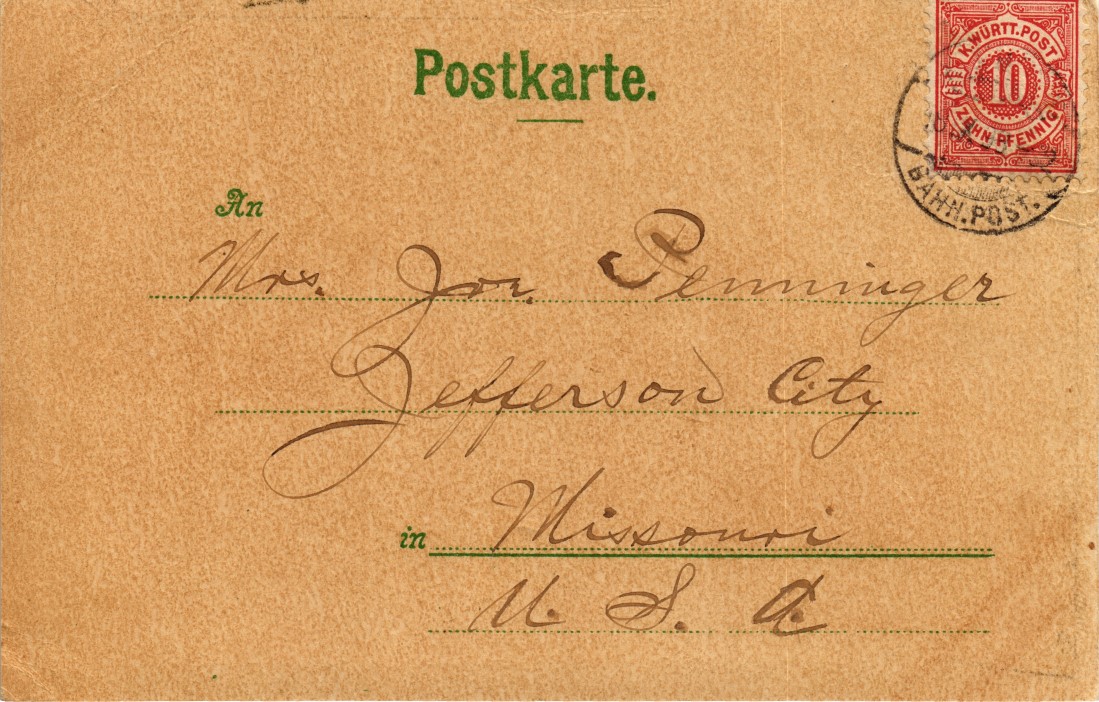 Postkarte.
K.WÜRTT.POST
10
ZEHN.PFENNIG
BAHN.POST.
An
Mrs. Joe. Penninger
Jefferson City
in Missouri
U. S. A.